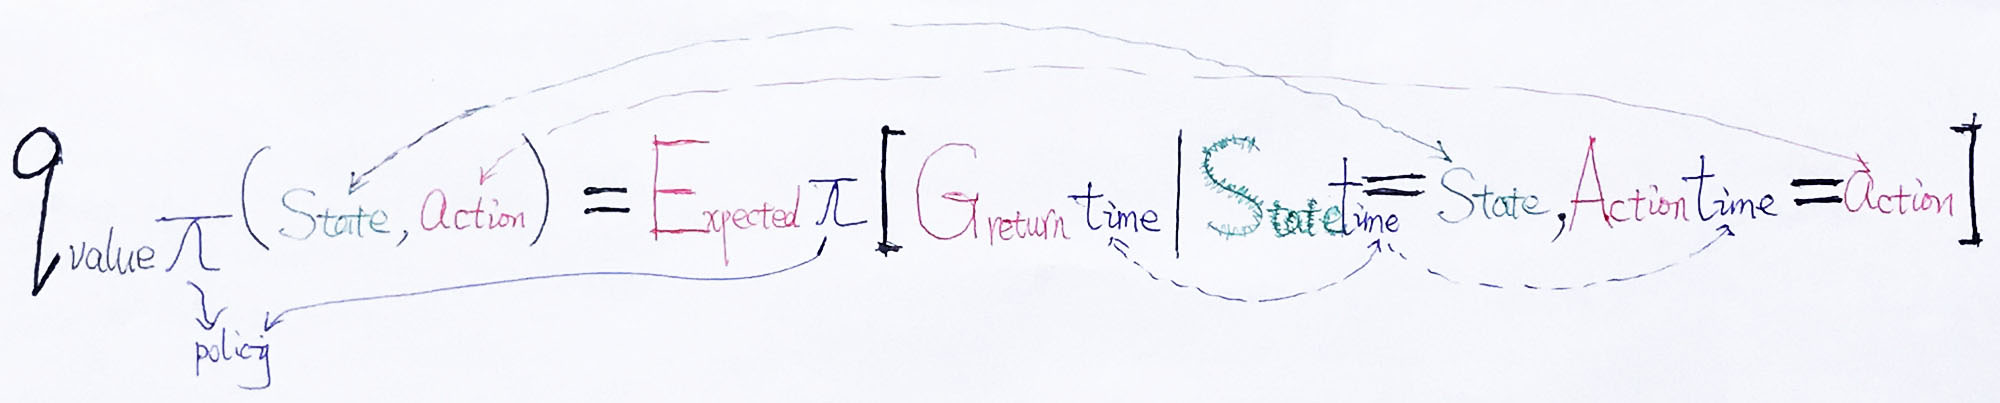 q value π (State, action) = Expected π [Greturn time | State time = State, Action time = action]
policy